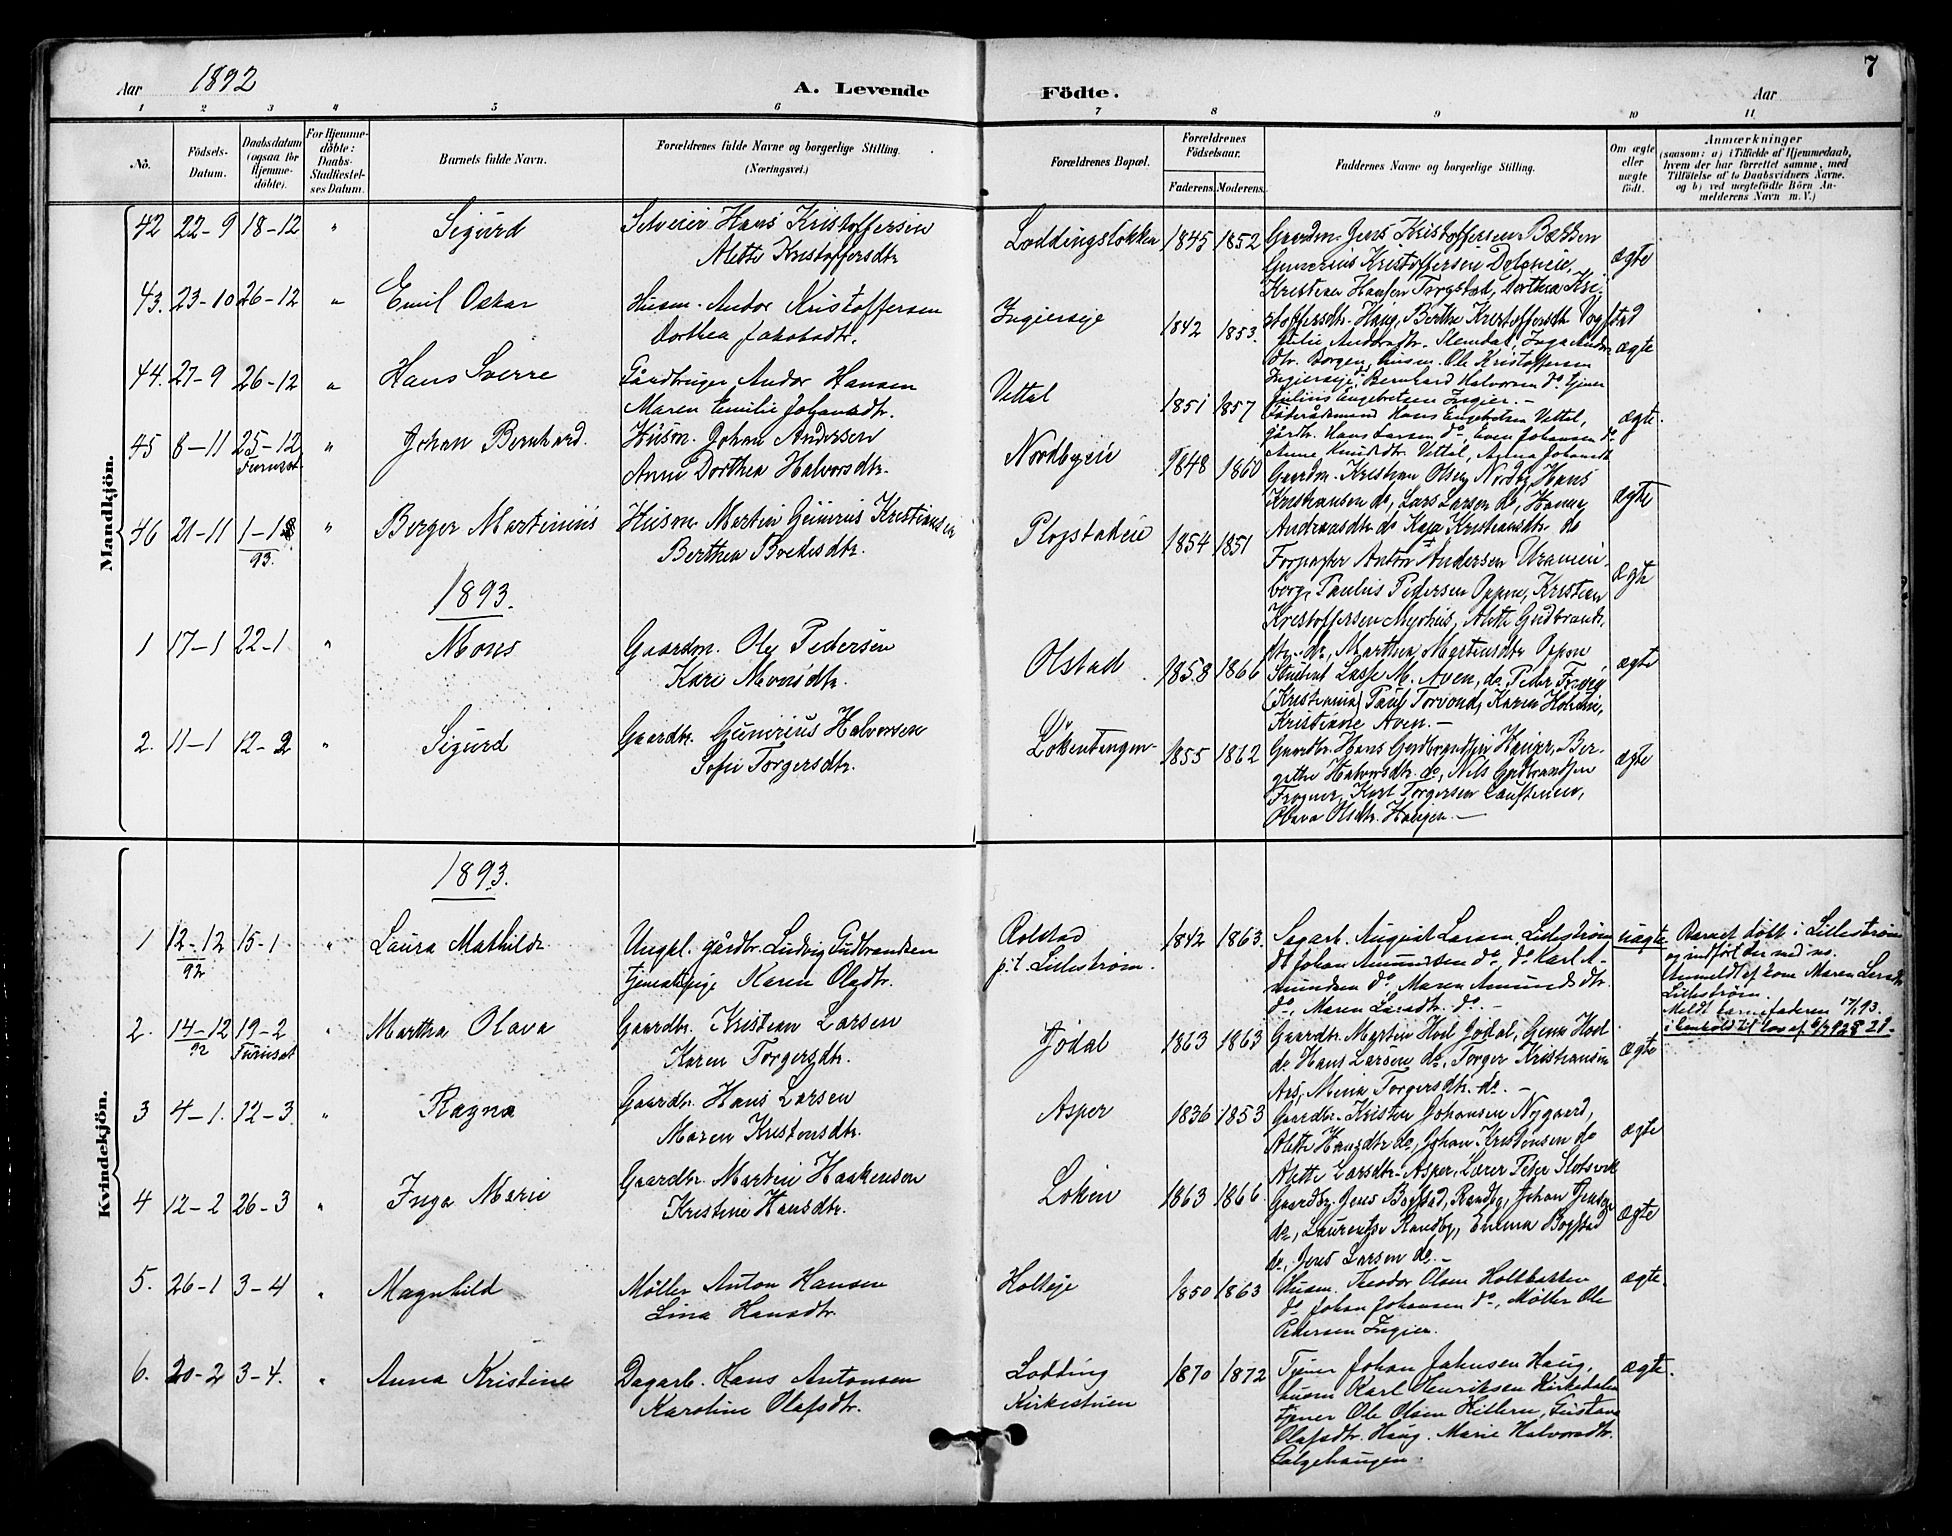 Aar 1892 A. Levende Födte. Aar 7
1 2 3 4 5 6 7 8 9 10 11
No.
Födsels-Datum.
Daabsdatum (ogsaa for Hjemmedöbte).
For Hjemmedöbte: Daabs-Stadfæstelses Datum.
Barnets fulde Navn.
Forældrenes fulde Navne og borgerlige Stilling. (Næringsvei.)
Forældrenes Bopæl.
Forældrenes Födselsaar. Faderens. Moderens.
Faddernes Navne og borgerlige Stilling.
Om ægte eller uægte födt.
Anmærkninger (saasom: a) i Tilfælde af Hjemmedaab, hvem der har forrettet samme, med Tilföielse af to Daabsvidners Navne, og b) ved uægtefödte Börn Anmelderens Navn m. V.)
Mandkjön.
42 22-9 18-12 " Sigurd Selveier Hans Kristoffersen Loddingsløkken 1845 1852 Gaardm. Jens Kristoffersen ægte
Alette Kristoffersdtr Gunerius Kristoffersen
Kristian Hansen Torgstad, Dorthea Kri-
43. 23-10 26-12 " Emil Oskar Husm. Andor Kristoffersen Ingierseje 1842 1853. stoffersdtr. Haug, Berthe Kristoffersdtr ægte
Dorthea Jakobsdtr. Julie Andersdtr. Inga Anders-
dtr. Borgen, Husm. Ole Kristoffersen
44. 27-9 26-12 " Hans Sverre Gårdbruger Andor Hansen Vettal 1851 1857 Ingierseje, Bernhard Halvorsen do. tjener ægte.
Maren Emilie Johansdtr. Julius Engebretsen Ingier.-
Föderådsmand Hans Engebretsen Vettal,
45 8-11 25-12 " Johan Bernhard. Husm. Johan Andersen Nordbyeie 1848 1860 gårdbr. Hans Larsen do, Even Johansen do ægte
Furuset Anne Dorthea Halvorsdtr. Anne Knudsdtr. Vettal, Agna Johansdtr
Gaardm. Kristian Olsen Nordby, Hans
Kristiansen do, Lars Larsen do, Hanna
46 21-11 1-1 " Berger Martinius Husm. Martin Gunerius Kristiansen 1854 1851 Andreasdtr do Kaja Kristiansdtr do ægte
93. Berthea Bredesdtr. Forpagter Anton Andersen Uranien-
borg, Paulus Pedersen Oppen, Kristian
1893.
Kristoffersen Myrhus, Alette Gudbrands-
1 17-1 22-1 " Mons Gaardm. Ole Pedersen Olstad 1858 1866 dtr. do, Marthea Martinsdtr Oppen ægte
Kari Monsdtr. Student Lasse M. Aven, do. Peder
(Kristiania) Paul Torvond, Karen
Kristiane Aven.-
2. 11-1 12-2 " Sigurd Gaardbr. Gunerius Halvorsen Løkentangen 1855 1862 Gaardbr. Hans Gudbrandsen Hauger, Ber- ægte
Sofie Torgersdtr. gethe Halvorsdtr. do, Nils Gudbrandsen
Frogner, Karl Torgersen
Olava Olsdtr. Haugen.-
Kvindekjön.
1893.
1 12-12 15-1 " Laura Mathilde Ungkl. gårdbr. Ludvig Gudbrandsen Rolstad 1842 1863. Sagarb. August Larsen Lillestrøm uægte Barnet døbt i Lillestrøm
92 Tjenestepige Karen Olsdtr. p.t. Lillestrøm. do Johan Amundsen do, do Karl A- og indført der med no.
mundsen do, Maren Amundsdtr. Anmeldt af kone Maren Larsdtr
do, Maren Larsdtr. do.- Lillestrøm.
Meldt barnefaderen 17/1 93.
i henhold til lov af 6/7 92 § 21.
2. 14-12 19-2 " Martha Olava Gaardbr. Kristian Larsen Jødal 1863 1863 Gaardbr. Martin Hval Jødal, Gina Hval ægte
92 Furuset Karen Torgersdtr. do. Hans Larsen do, Torger Kristiansen
Aas, Mina Torgersdtr. do.-
3 4-1. 12-3 " Ragna Gaardbr. Hans Larsen Asper 1836 1853 Gaardbr. Kristen Johansen Nygaard, ægte
Maren Kristensdtr. Alette Hansdtr do, Johan Kristensen do
Alette Larsdtr. Asper, Lærer Peter Slotsvik
4 12-2 26-3 " Inga Marie Gaardbr. Martin Haakenson Løken 1863 1866 Gaardbr. Jens Bogstad, Randby, Johan Jensen ægte
Kristine Hansdtr. do, Laurentse Randby, Emma Bogstad
do, Jens Larsen do.-
5. 26-1 3-4 " Magnhild Møller Anton Hansen Holteje 1850 1863 Husm. Teodor Olsen Holtbakken ægte.
Lina Hansdtr. do Johan Johansen do, Møller Ole
Pedersen Ingier.
6. 20-2 3-4. " Anna Kristine Dagarb. Hans Antonsen Lodding 1870 1872 Tjener Johan Jahnsen Haug, ægte.
Karoline Olafsdtr. Kirkestuen Husm Karl Henriksen Kirkedalen
tjener Ole Olsen Hillern, Gustava
Olafsdtr. Haug. Marie Halvorsdtr.
Galgehaugen.